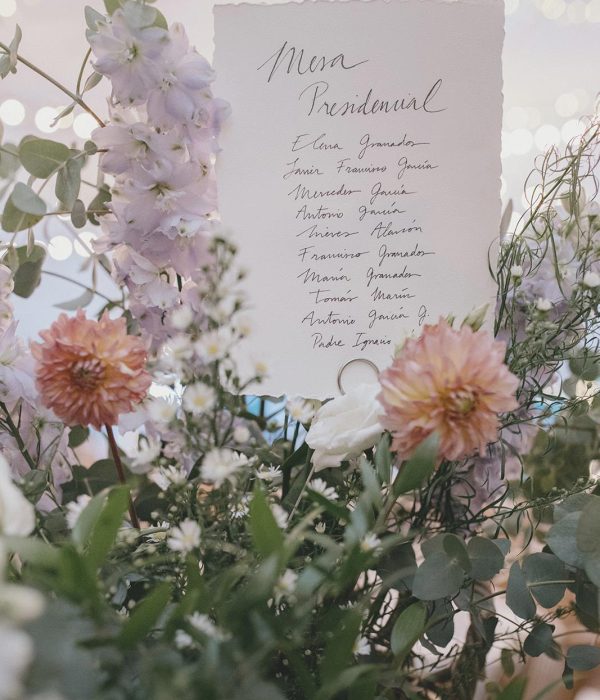 Mesa
Presidencial
Elena Granados
Javier Francisco García
Mercedes García
Antonio García
Nieves Alarcón
Francisco Granados
María Granados
Tomás Marín
Antonio García G.
Padre Ignacio